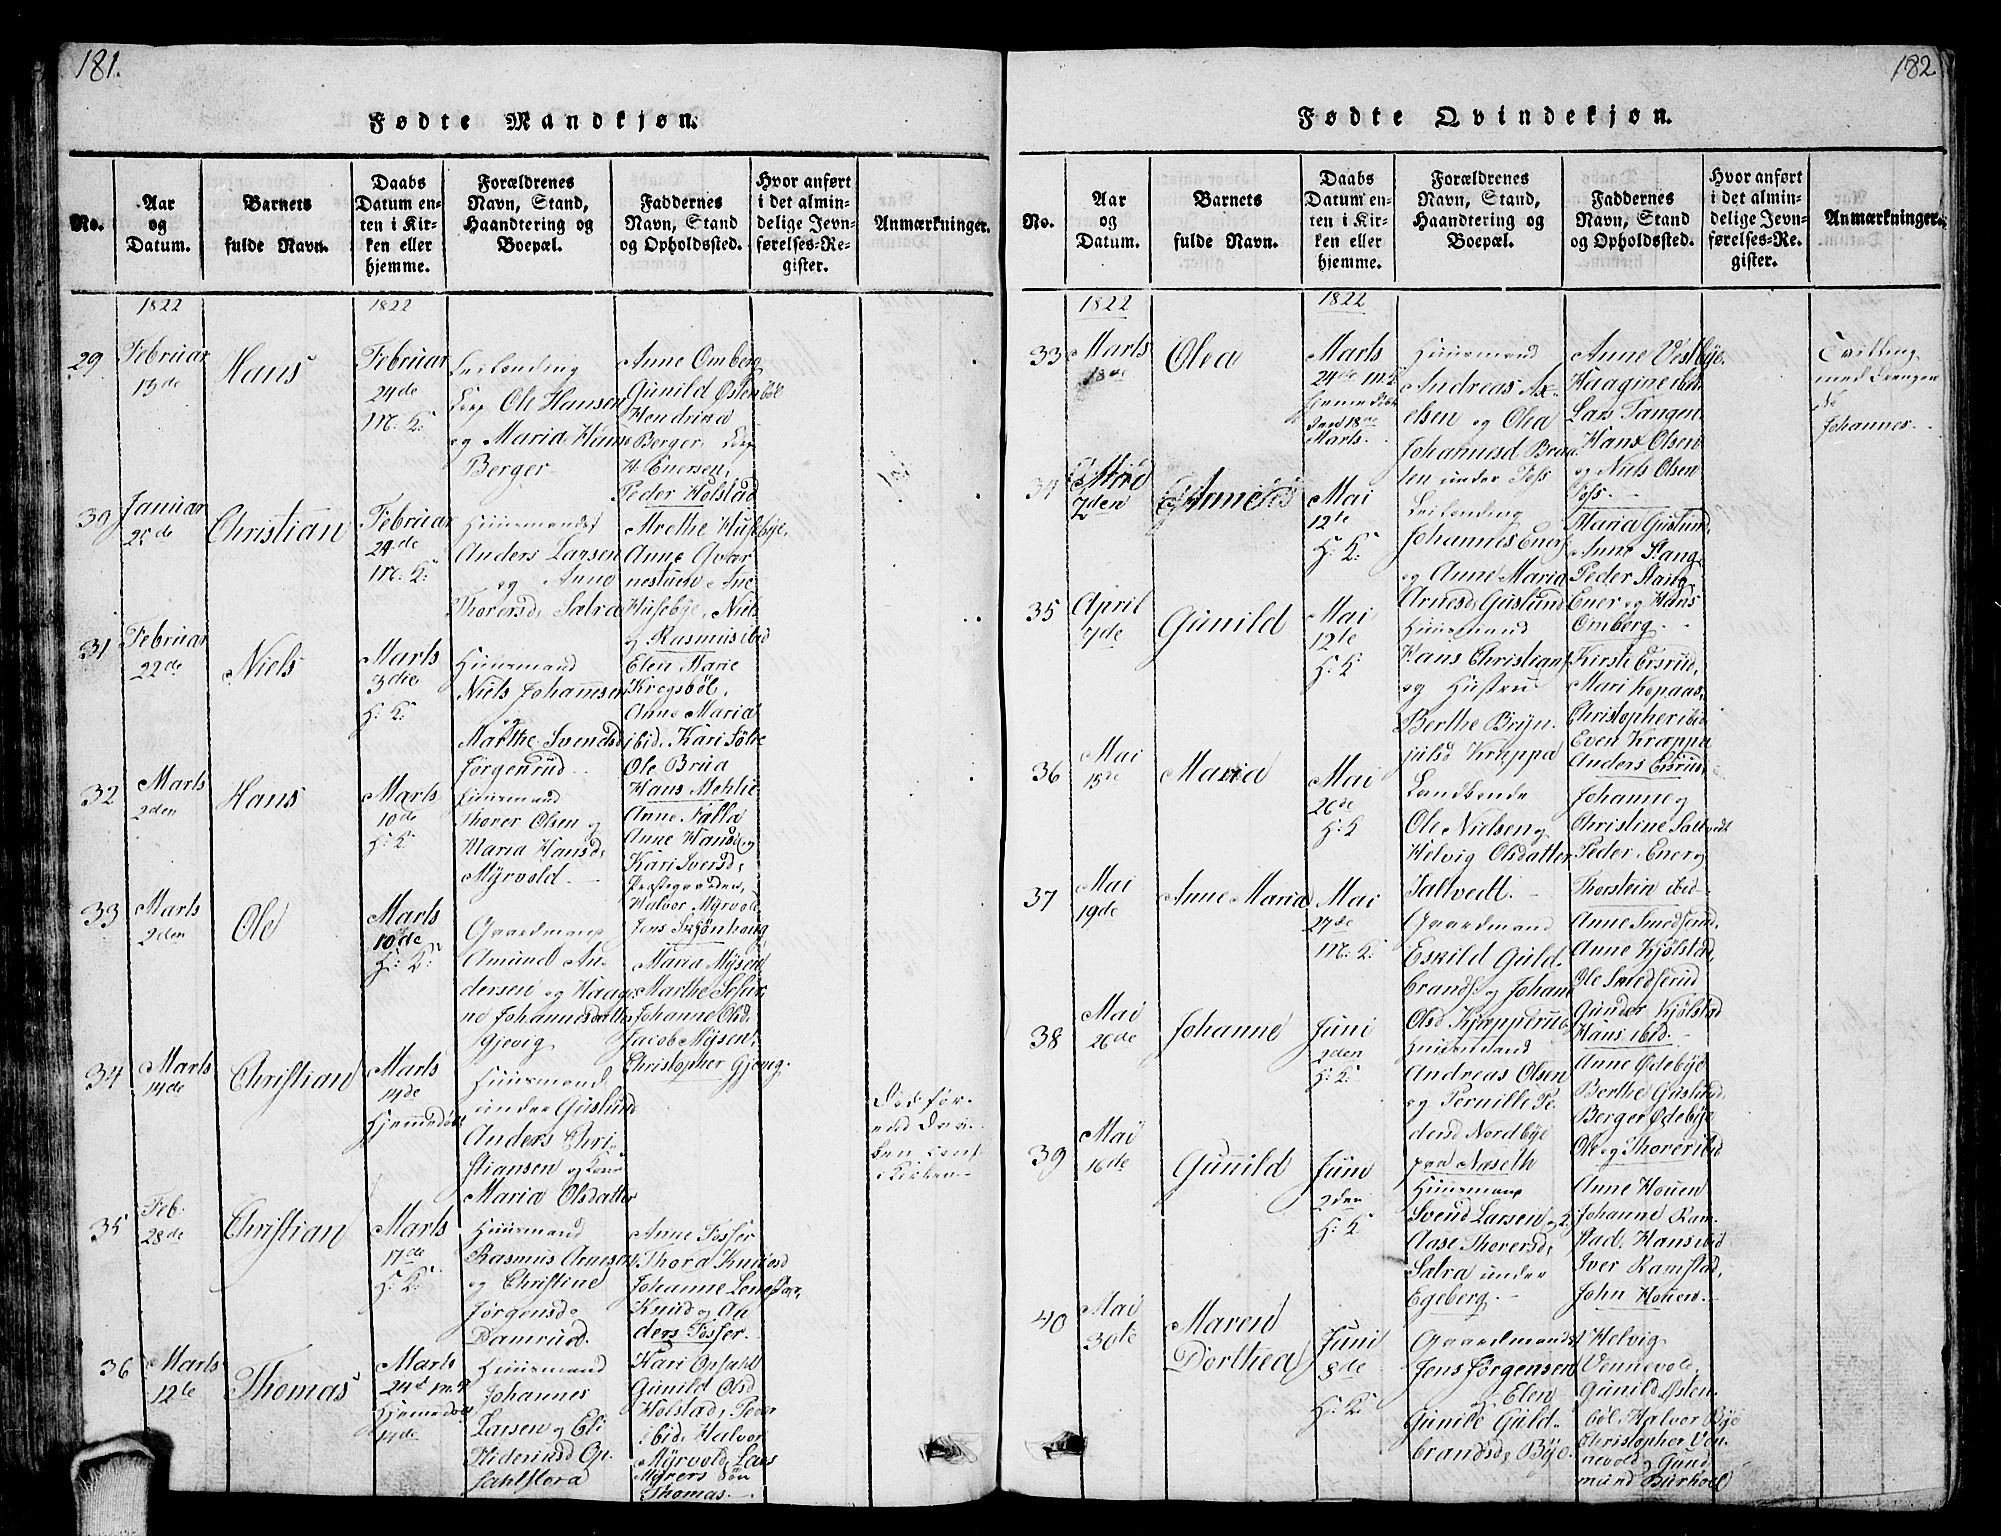 181.
Fødte Mandkjøn.
No.
Aar
og
Datum.
Barnets
fulde Navn.
Daabs
Datum en-
ten i Kir-
ken eller
hjemme.
Forældrenes
Navn, Stand,
Haandtering og
Boepæl.
Faddernes
Navn, Stand
og Opholdssted.
Hvor anført
i det almin-
delige Jevn-
førelses-Re-
gister.
Anmærkninger.
1822
1822
29
Februar
13de
Hans
Februar
24de
M. K:
Leilending
Ole Hansen
og Maria Hans
Berger
Anne Omberg
Gunild Østenbøl
Hendrina
Berger,
H. Enersen,
Peder Holstad
30
Januar
25de
Christian
Februar
24de
M. K:
Huusmand
Anders Larsen
og Anne
Thorersd. Salra
Mrethe Husebye,
Anne Qvær
nestuen
Husebye, Niels
og Rasmus ibid
31
Februar
22de
Niels
Marts
3die
H: K:
Huusmand
Niels Johannsen
og
Marthe Svendsd
Jørgenrud
Elen Marie
Krogsbøl,
Anne Maria
ibid, Kari Sølie
Ole Brua
Hans Mehlie
32
Marts
2den
Hans
Marts
10de
H: K:
Huusmand
Thorer Olsen og
Maria Hansd.
Myrvold
Anne Falla
Anne Hansd og
Kari Iversd.
Præstegaarden,
Halvor Myrvold
Jens Skjønhaug
33
Marts
2den
Ole
Marts
10de
H: K:
Gaardmand
Amund An-
dersen og Haagi-
ne Johannesdatter
Gjevig
Maria Mysen
Marthe
Johanne Olsd.
Jacob Mysen,
Christopher Gjevig.
34
Marts
14de
Christian
Marts
14de
Hjemmedøbt
Huusmand
under Guslund
Anders Chri-
stiansen og Kone
Maria Olsdatter
Død før-
end Daa-
ben conf
i Kirken
35
Feb.
28de
Christian
Marts
17de
H: K:
Huusmand
Rasmus Arnesen
og Christine
Jørgensd.
Damrud.
Anne Fosser
Thora Knudsd
Johanne
Knud og An-
ders Fosser.
36
Marts
12te
Thomas
Marts
24d M. K
Hjemmedøbt
14de
Huusmand
Johannes
Larsen og Eli
Op
sahlflora
Kari Opsahl
Gunild Olsd
Holstad, Peder
ibid, Halvor
Myrvold, Lars
Myrers Søn
Thomas.
182
Fødte Qvindekjøn.
No.
Aar
og
Datum.
Barnets
fulde Navn.
Daabs
Datum en-
ten i Kir-
ken eller
hjemme.
Forældrenes
Navn, Stand,
Haandtering og
Boepæl.
Faddernes
Navn, Stand
og Opholdssted.
Hvor anført
i det almin-
delige Jevn-
førelses-Re-
gister.
Anmærkninger.
1822
1822
33
Marts
18de
Olea
Marts
24de M. K
Hjemmedøbt
18de
Marts.
Huusmand
Andreas Ax-
elsen og Olea
Johannesd Braa-
ten under Foss
Anne Vestbye.
Haagine ibid
Lars Tangen
Hans Olsen
og Niels Olsen
Foss.
Tvilling
med Drengen
No
Johannes.
34
7den
Mai
12te
H: K:
Leilending
Johannes Ener
og Anne Maria
Arnesd. Guslund
Maria Guslund,
Anne Stang
Peder Stang
Ener og Hans
Omberg.
35
April
7de
Gunild
Mai
12te
H: K
Huusmand
Hans Christians
og Hustru
Berthe Bryn-
julsd Kræppa
Kirsti Ersrud,
Mari Kopaas,
Christopher ibid
Even Kræppa
Anders Ersrud
36
Mai
15de
Maria
Mai
26de
H: K
Landbonde
Ole Nielsen og
Helvig Olsdatter
Saltvedt.
Johanne og
Christine Saltvedt
Peder, Ener og
Thorstein ibid
37
Mai
19de
Anne Maria
Mai
27de
M. K:
Gaardmand
Eskild Guld-
brands. og Johanne
Olsd Kjæpperud
Anne Smedserud
Anne Kjølstad,
Ole Smedserud
Gunder Kjølstad
Hans ibid.
38
Mai
26de
Johanne
Juni
2den
H: K:
Huusmand
Andreas Olsen
og Pernille Pe-
dersd Nordbye
paa Næseth
Anne Ødebye
Berthe Guslund
Berger Ødebye
Ole og Thorer ibid
39
Mai
16de
Gunild
Juni
2den
H: K
Huusmand
Svend Larsen og K:
Aase Thorersd.
Salra under
Egeberg.
Anne Houen
Johanne Ram-
stad, Hans ibid
Iver Ramstad,
John Houen.
40
Mai
30te
Maren
Dorthea
Juni
8de
H: K:
Gaardmand
Jens Jørgensen
og Elen
Gunild Guld-
brandsd. Bye
Helvig
Vennevold,
Gunild Østen-
bøl, Halvor Bye
Christopher Ven-
nevold og Gud-
mund Burhoel